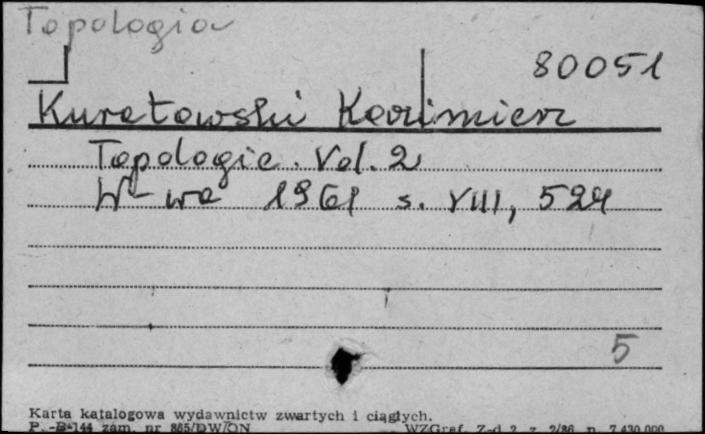 Topologia
80051
Kuratowski Kazimierz
Topologie. Vol. 2
W-wa 1961 s. VIII, 524
5
Karta katalogowa wydawnictw zwartych i ciągłych.
P. -B-144 zam. nr 865/DW/ON WZGraf. Z-d 2 z. 2/86 n. 7.430.000